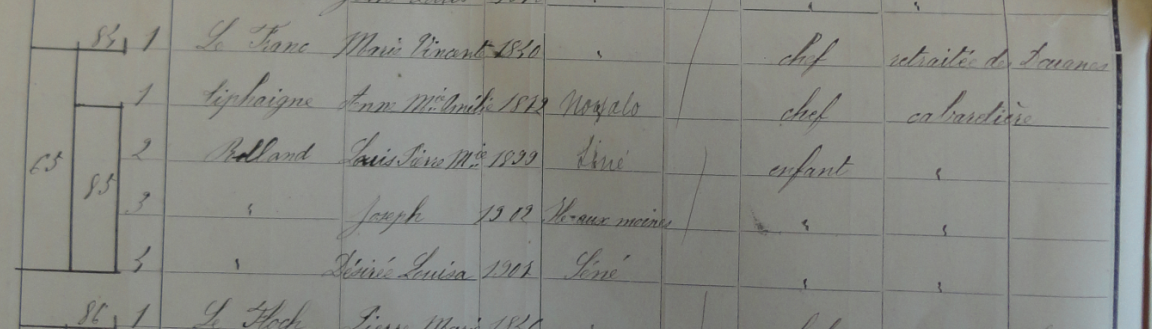 84 1 Le Franc Marie Vincente 1840 " chef retraitée des Douanes
1 Tiphaigne Anne Mie Amélie 1872 Noyalo chef cabaretière
65 85 2 Rolland Louis Pierre Mie 1899 Séné enfant "
3 " Joseph 1902 Ile-aux-moines " "
4 " Désirée Louisa 1904 Séné " "
86 1 Le Floch Pierre Marie 1840 "